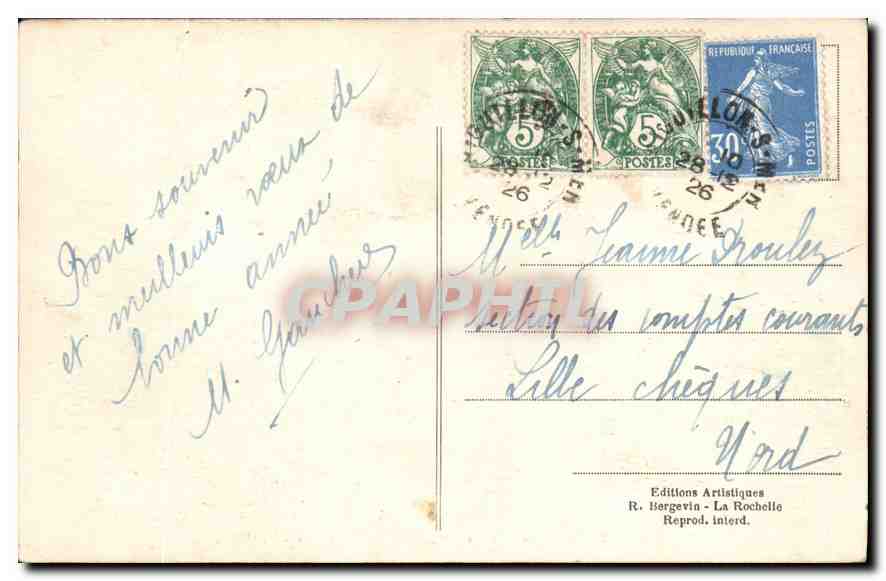 Bons souvenir
et meilleurs vœux de
bonne année
M. Gaucher
5
POSTES
5
POSTES
REPUBLIQUE FRANÇAISE
30
POSTES
AIGUILLON-S-MER
28-12
26
VENDEE
AIGUILLON-S-MER
10
28-12
26
VENDEE
Melle Jeanne Droulez
section des comptes courants
Lille chèques
Nord
CPAPHIL
Editions Artistiques
R. Bergevin - La Rochelle
Reprod. interd.